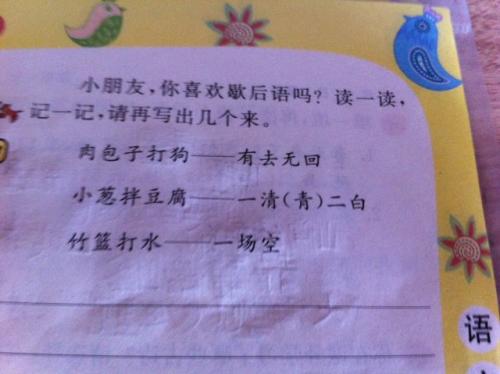 小朋友，你喜欢歇后语吗？读一读，
记一记，请再写出几个来。
肉包子打狗——有去无回
小葱拌豆腐——一清(青)二白
竹篮打水——一场空
语